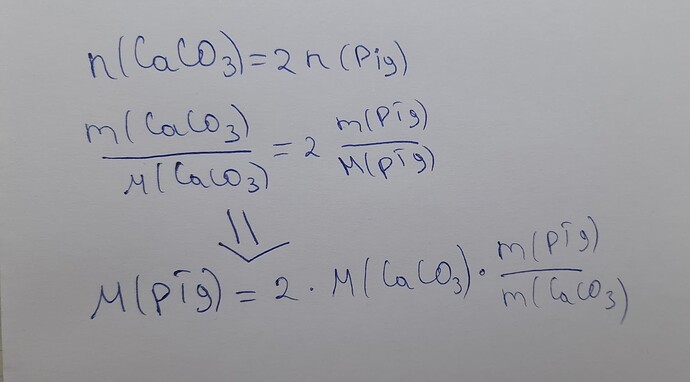 n(CaCO₃)=2n(Pig)
m(CaCO₃)/M(CaCO₃) = 2 m(Pig)/M(pig)
⇓
M(pig) = 2 · M(CaCO₃) · m(pig)/m(CaCO₃)